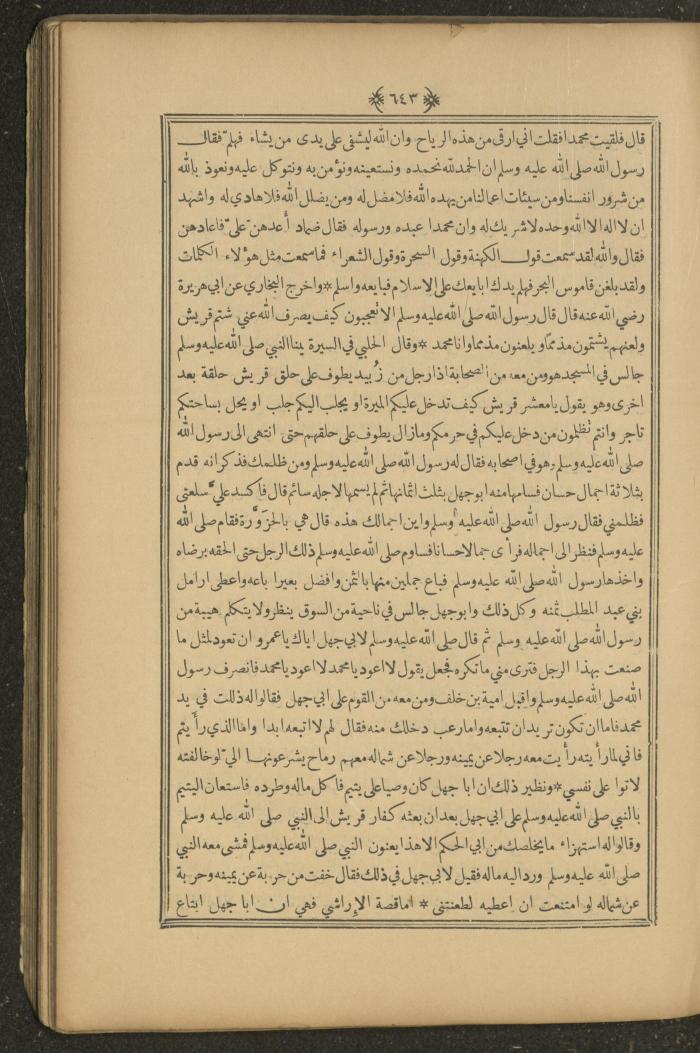 ﴿٦٤٣﴾
قال فلقيت محمدا فقلت اني ارقى من هذه الرياح وان الله ليشفى على يدى من يشاء فهلمّ فقال
رسول الله صلى الله عليه وسلم ان الحمد لله نحمده ونستعينه ونؤمن به ونتوكل عليه ونعوذ بالله
من شرور انفسنا ومن سيئات اعمالنا من يهده الله فلا مضل له ومن يضلل الله فلا هادي له واشهد
ان لا اله الا الله وحده لا شريك له وان محمدا عبده ورسوله فقال ضماد أعدهنّ عليّ فاعادهن
فقال والله لقد سمعت قول الكهنة وقول السحرة وقول الشعراء فما سمعت مثل هؤلاء الكلمات
ولقد بلغن قاموس البحر فهلم يدك ابايعك على الاسلام فبايعه واسلم * واخرج البخاري عن ابي هريرة
رضي الله عنه قال قال رسول الله صلى الله عليه وسلم الا تعجبون كيف يصرف الله عني شتم قريش
ولعنهم يشتمون مذمّما ويلعنون مذمما وانا محمد * وقال الحلبي في السيرة بينا النبي صلى الله عليه وسلم
جالس في المسجد هو ومن معه من الصحابة اذا رجل من زُبيد يطوف على حلق قريش حلقة بعد
اخرى وهو يقول يا معشر قريش كيف تدخل عليكم الميرة او يجلب اليكم جلب او يحل بساحتكم
تاجر وانتم تظلمون من دخل عليكم في حرمكم وما زال يطوف على حلقهم حتى انتهى الى رسول الله
صلى الله عليه وسلم وهو في اصحابه فقال له رسول الله صلى الله عليه وسلم ومن ظلمك فذكر انه قدم
بثلاثة اجمال حسان فسامها منه ابو جهل بثلث اثمانها ثم لم يسمها لاجله سائم قال فاكسد عليّ سلعتى
فظلمني فقال رسول الله صلى الله عليه وسلم واين اجمالك هذه قال هي بالحزوَّرة فقام صلى الله
عليه وسلم فنظر الى اجماله فرأى جمالا حسانا فساوم صلى الله عليه وسلم ذلك الرجل حتى الحقه برضاه
واخذها رسول الله صلى الله عليه وسلم فباع جملين منها بالثمن وافضل بعيرا باعه واعطى ارامل
بني عبد المطلب ثمنه وكل ذلك وابو جهل جالس في ناحية من السوق ينظر ولا يتكلم هيبة من
رسول الله صلى الله عليه وسلم ثم قال صلى الله عليه وسلم لابي جهل اياك يا عمرو ان تعود لمثل ما
صنعت بهذا الرجل فترى مني ما تكره فجعل يقول لا اعود يا محمد لا اعود يا محمد فانصرف رسول
الله صلى الله عليه وسلم واقبل امية بن خلف ومن معه من القوم على ابي جهل فقالوا له ذللت في يد
محمد فاما ان تكون تريد ان تتبعه واما رعب دخلك منه فقال لهم لا اتبعه ابدا واما الذي رأيتم
فاني لما رأيته رأيت معه رجلا عن يمينه ورجلا عن شماله معهم رماح يشرعونها اليّ لو خالفته
لاتوا على نفسي * ونظير ذلك ان ابا جهل كان وصيا على يتيم فاكل ماله وطرده فاستعان اليتيم
بالنبي صلى الله عليه وسلم على ابي جهل بعد ان بعثه كفار قريش الى النبي صلى الله عليه وسلم
وقالوا له استهزاء ما يخلصك من ابي الحكم الا هذا يعنون النبي صلى الله عليه وسلم فمشى معه النبي
صلى الله عليه وسلم ورد اليه ماله فقيل لابي جهل في ذلك فقال خفت من حربة عن يمينه وحربة
عن شماله لو امتنعت ان اعطيه لطعنتنى * اما قصة الإراشي فهي ان ابا جهل ابتاع